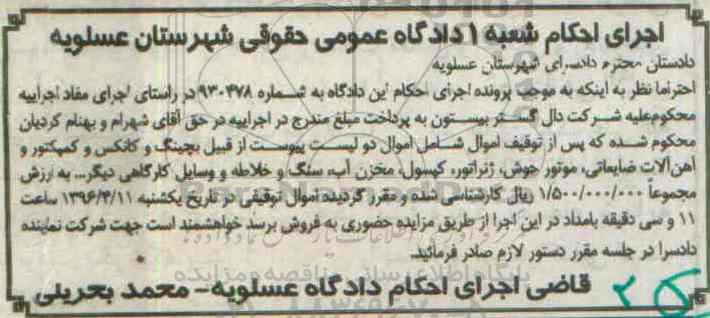 اجرای احکام شعبه ۱ دادگاه عمومی حقوقی شهرستان عسلویه
دادستان محترم دادسرای شهرستان عسلویه
احتراما نظر به اینکه به موجب پرونده اجرای احکام این دادگاه به شماره ۹۳۰۴۷۸ در راستای اجرای مفاد اجراییه
محکوم‌علیه شرکت دال گستر بیستون به پرداخت مبلغ مندرج در اجراییه در حق آقای شهرام و بهنام کردیان
محکوم شده که پس از توقیف اموال شامل اموال دو لیست پیوست از قبیل بچینگ و کانکس و کمپکتور و
آهن‌آلات ضایعاتی، موتور جوش، ژنراتور، کپسول، مخزن آب، سنگ و خلاطه و وسایل کارگاهی دیگر... به ارزش
مجموعاً ۱/۵۰۰/۰۰۰/۰۰۰ ریال کارشناسی شده و مقرر گردیده اموال توقیفی در تاریخ یکشنبه ۱۳۹۶/۴/۱۱ ساعت
۱۱ و سی دقیقه بامداد در این اجرا از طریق مزایده حضوری به فروش برسد خواهشمند است جهت شرکت نماینده
دادسرا در جلسه مقرر دستور لازم صادر فرمائید.
قاضی اجرای احکام دادگاه عسلویه- محمد بحرینی
پایگاه اطلاع رسانی مناقصه و مزایده